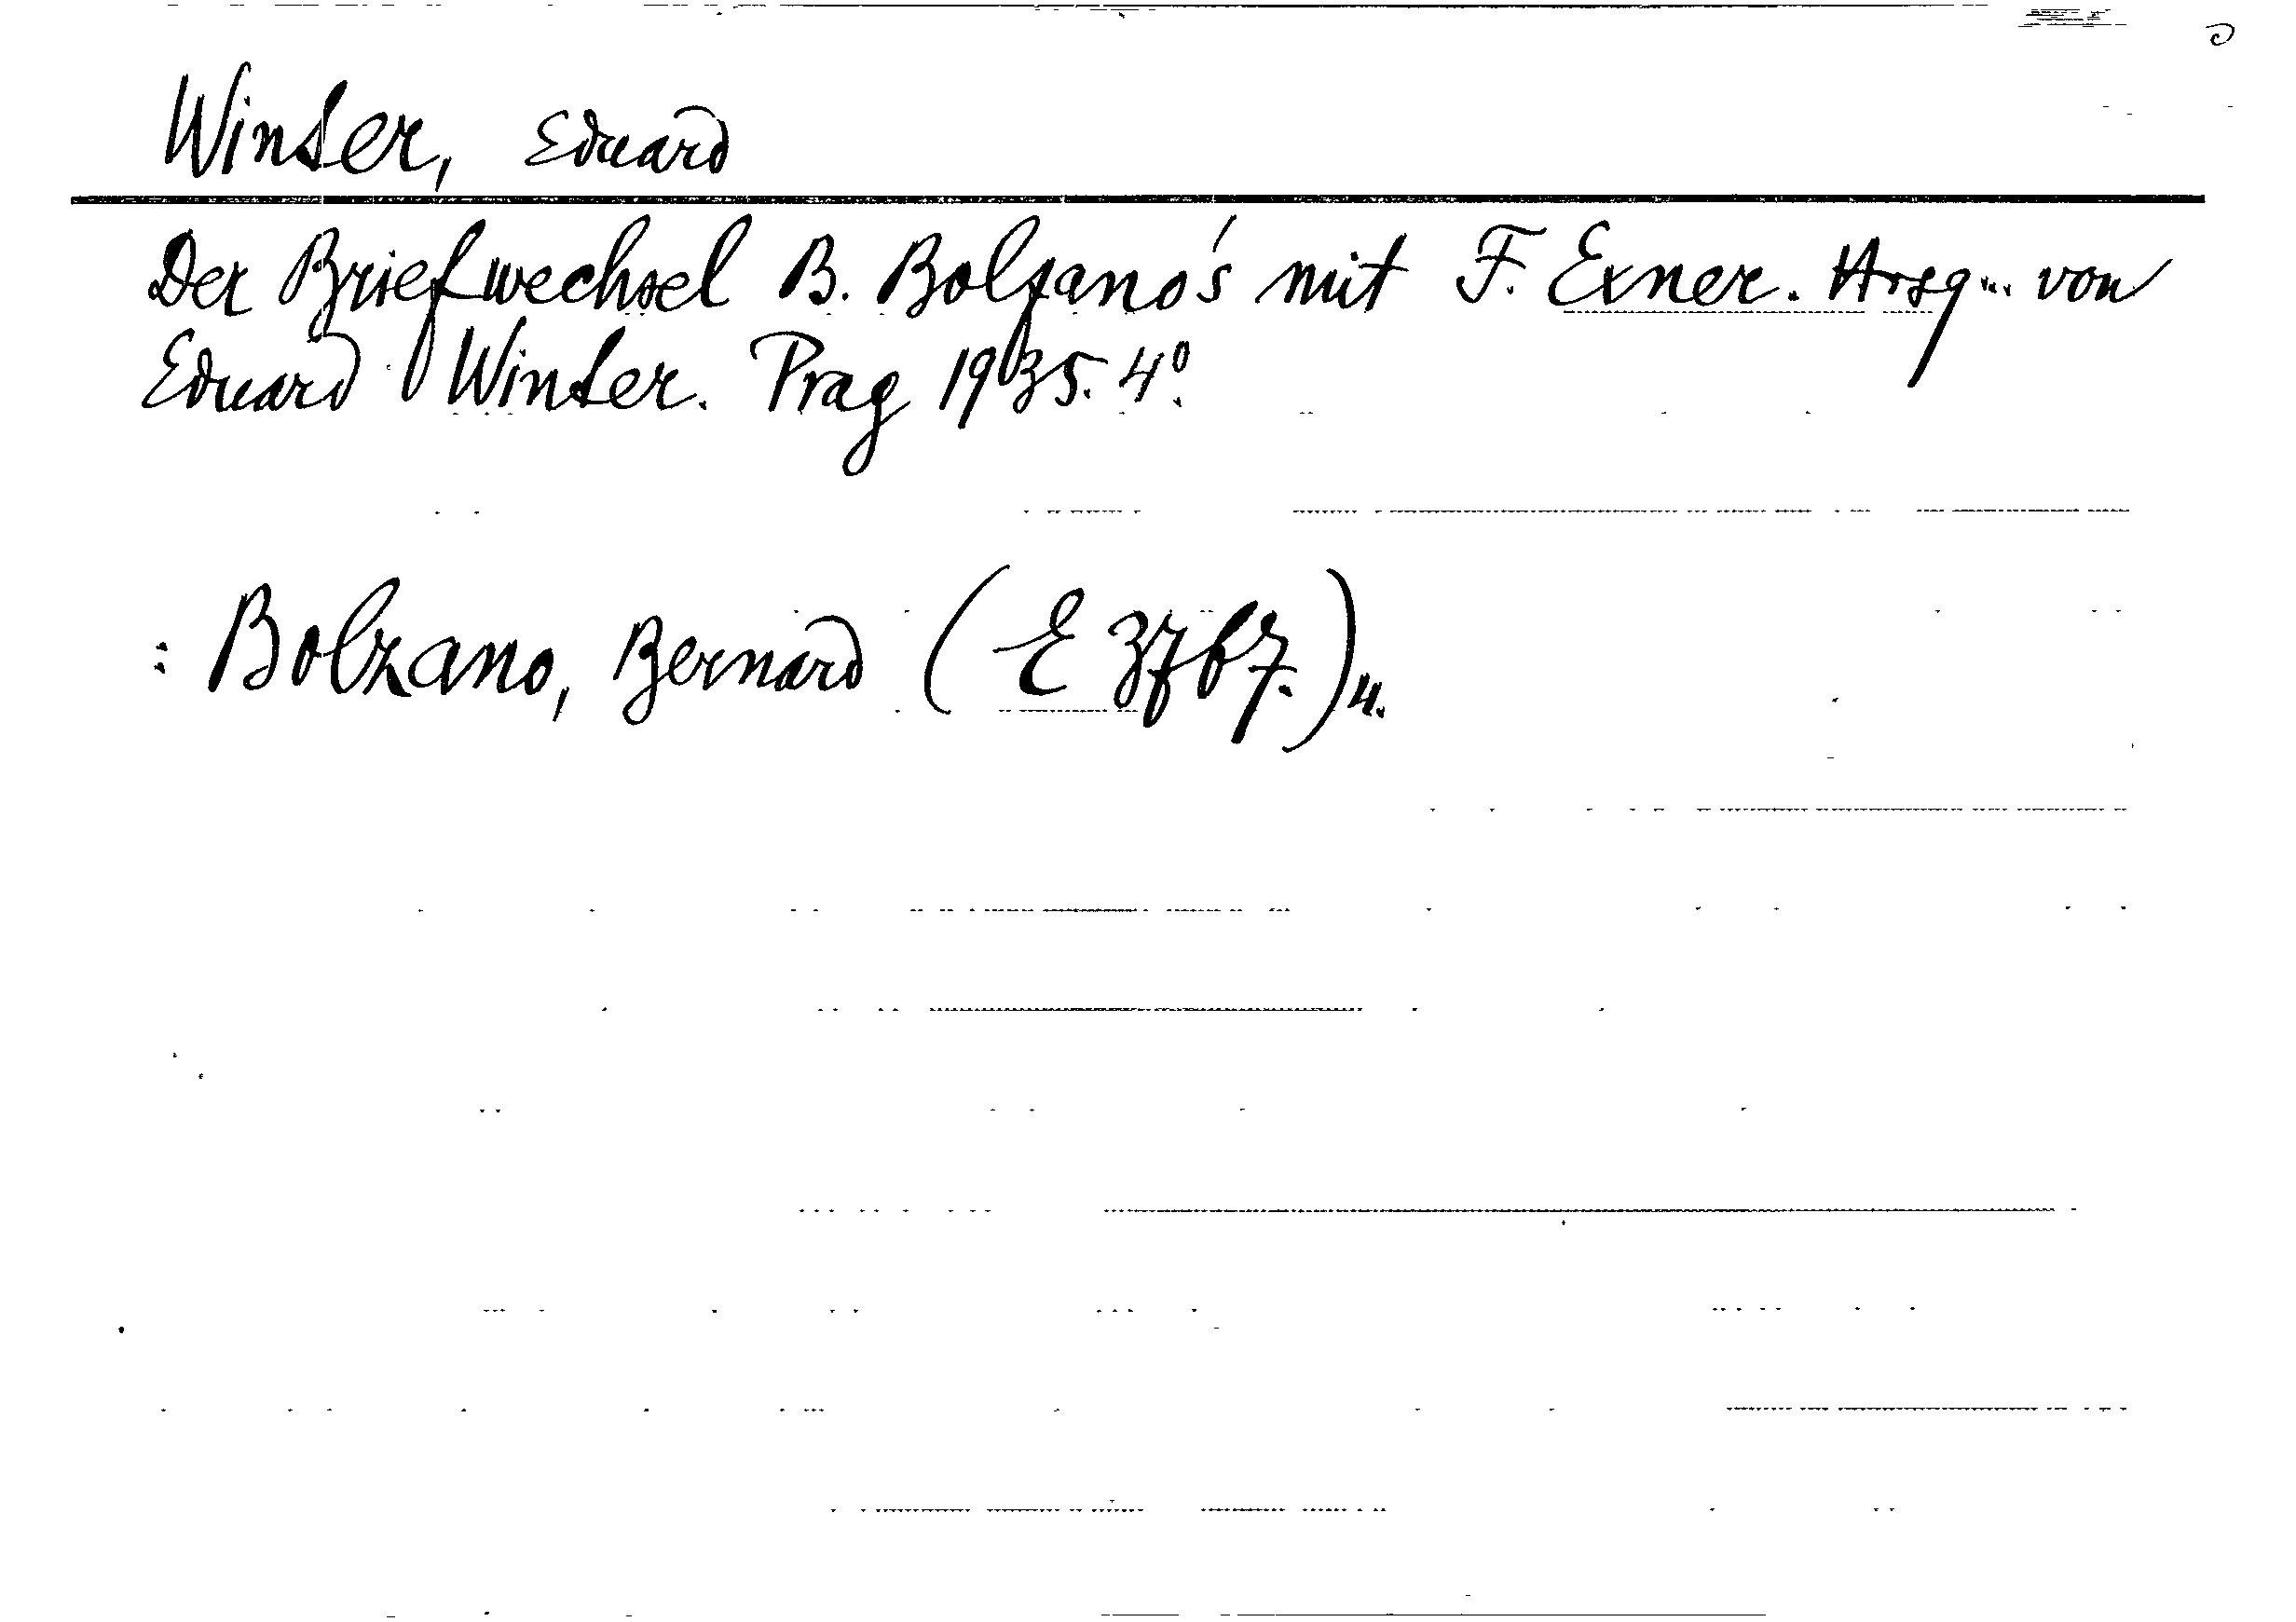 Winter, Eduard
Der Briefwechsel B. Bolzano's mit F. Exner. Hrsg. von
Eduard Winter. Prag 1935. 4°.
: Bolzano, Bernard (E 3767.) 4.